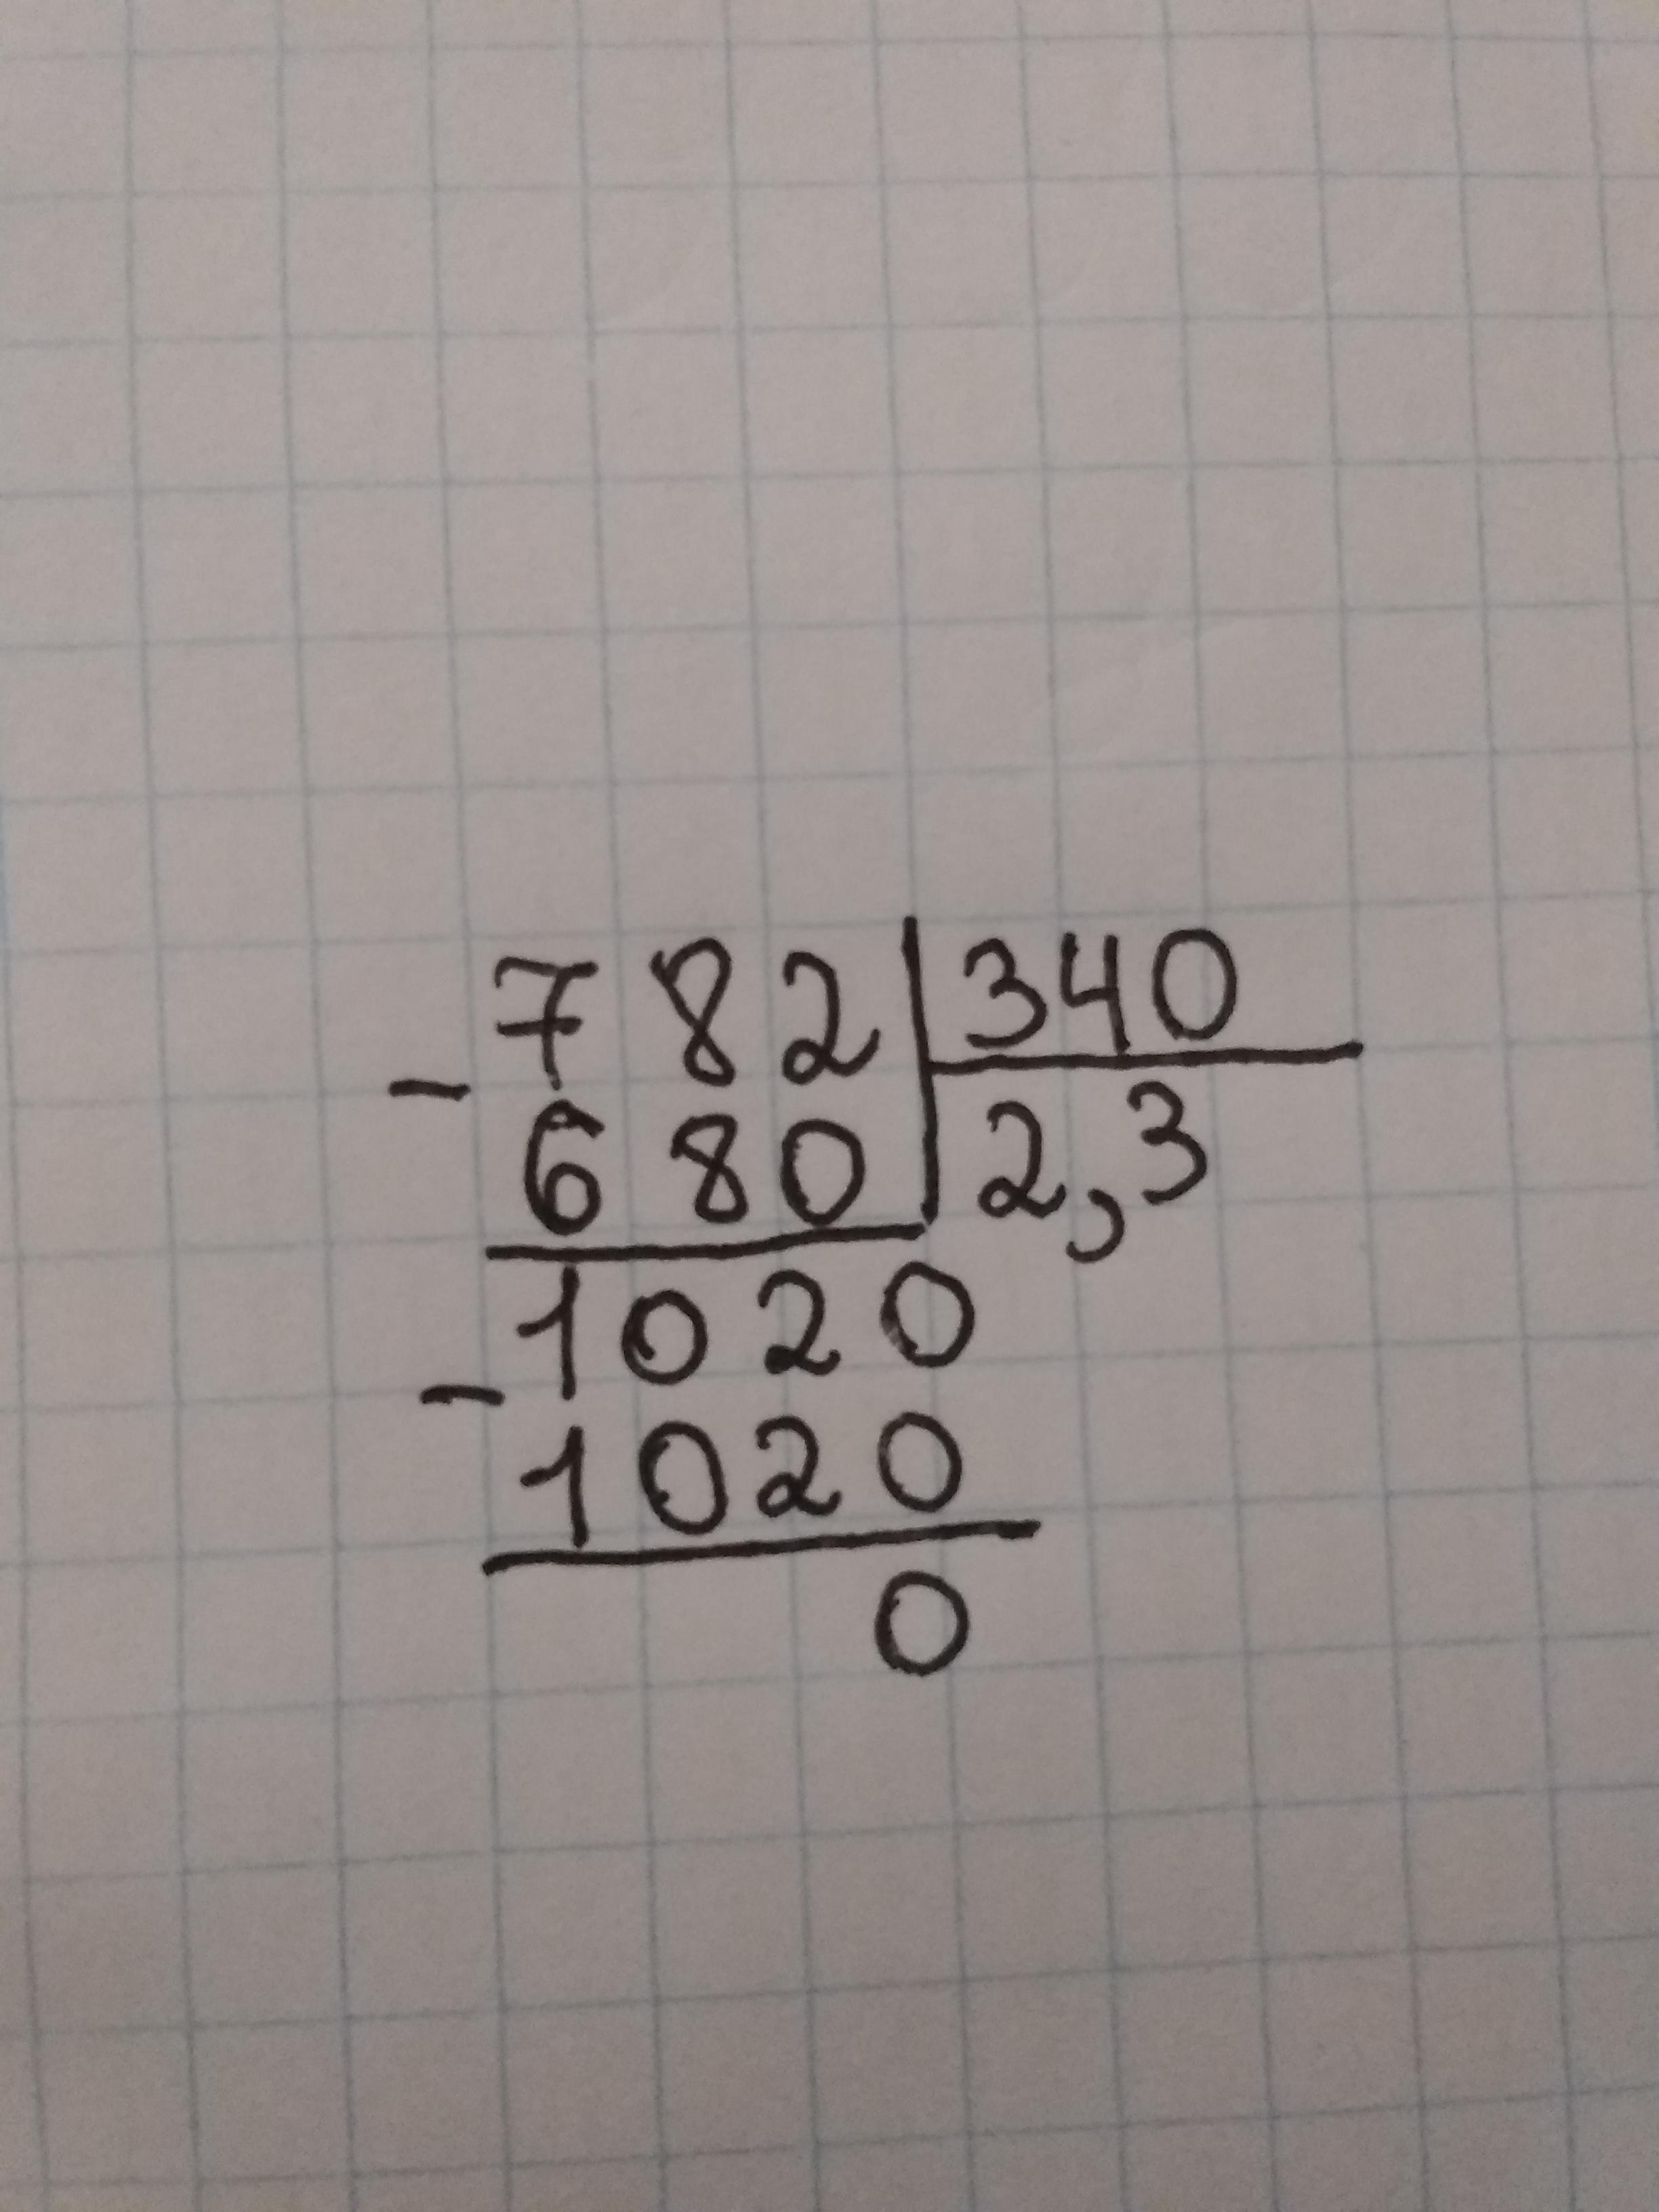 782 340
- 680 2,3
1020
- 1020
0